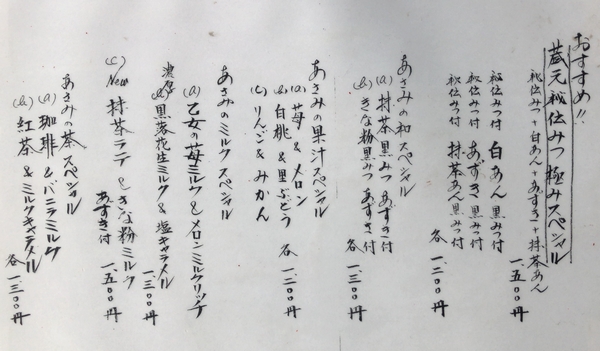 おすすめ!!
蔵元秘伝みつ極みスペシャル
秘伝みつ+白あん+あずき+抹茶あん
一、五〇〇円
秘伝みつ付 白あん黒みつ付
秘伝みつ付 あずき黒みつ付
秘伝みつ付 抹茶あん黒みつ付
各 一、二〇〇円
あさみの和スペシャル
(a) 抹茶黒みつあずき付
(b) きな粉黒みつあずき付
各 一、三〇〇円
あさみの果汁スペシャル
(a) 苺&メロン
(b) 白桃&里ぶどう
(c) りんご&みかん
各 一、二〇〇円
あさみのミルクスペシャル
(a) 乙女の苺ミルク&メロンミルクリッチ
濃厚
(b) 黒落花生ミルク&塩キャラメル
一、三〇〇円
(c) New 抹茶ラテ&きな粉ミルク
あずき付
一、五〇〇円
あさみの茶スペシャル
(a) 珈琲&バニラミルク
(b) 紅茶&ミルクキャラメル
各 一、三〇〇円